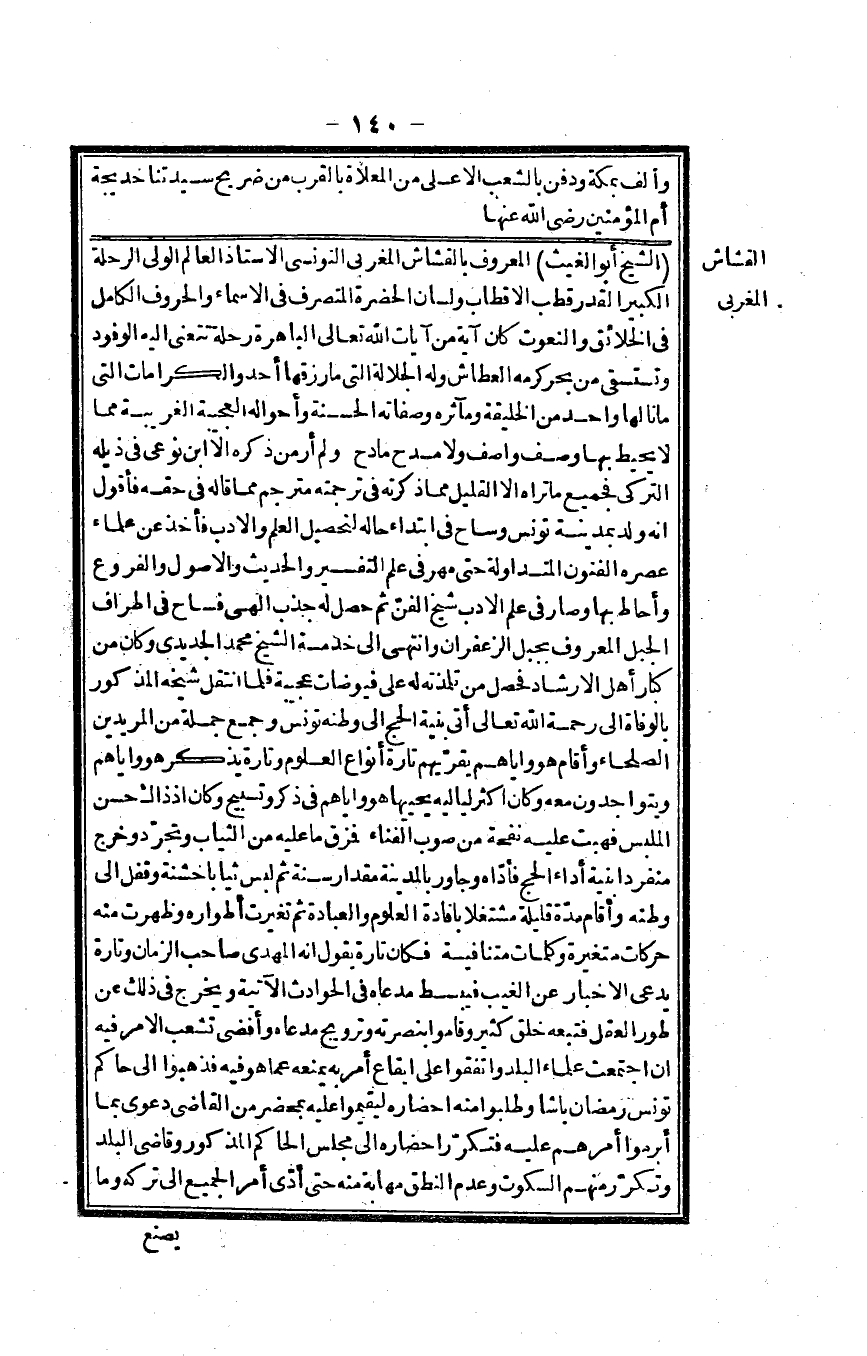 - ١٤٠ -
وألف بمكة ودفن بالشعب الاعلى من المعلاة بالقرب من ضريح سيدتنا خديجة
أم المؤمنين رضى الله عنها
القشاش
المغربى
(الشيخ أبو الغيث) المعروف بالقشاش المغربى التونسى الاستاذ العالم الولى الرحلة
الكبير القدر قطب الاقطاب ولسان الحضرة المتصرف فى الاسماء والحروف الكامل
فى الخلائق والنعوت كان آية من آيات الله تعالى الباهرة رحلة تتعنى اليه الوفود
وتستسقى من بحر كرمه العطاش وله الجلالة التى مارزقها أحد والكرامات التى
مانالها واحد من الخليقة ومآثره وصفاته الحسنة وأحواله العجيبة الغريبة مما
لا يحيط بها وصف واصف ولا مدح مادح ولم أر من ذكره الا ابن نوعى فى ذيله
التركى فجميع ماتراه الا القليل مما ذكرته فى ترجمته مترجم مما قاله فى حقه فأقول
انه ولد بمدينة تونس وساح فى ابتداء حاله لتحصيل العلم والادب فأخذ عن علماء
عصره الفنون المتداولة حتى مهر فى علم التفسير والحديث والاصول والفروع
وأحاط بها وصار فى علم الادب شيخ الفنّ ثم حصل له جذب الهى فساح فى اطراف
الجبل المعروف بجبل الزعفران وانتهى الى خدمة الشيخ محمد الجديدى وكان من
كبار أهل الارشاد فحصل من تلمذته له على فيوضات عجيبة فلما انتقل شيخه المذكور
بالوفاة الى رحمة الله تعالى أتى بنية الحج الى وطنه تونس وجمع جملة من المريدين
الصلحاء وأقام هو واياهم يقريهم تارة أنواع العلوم وتارة يذكر هو واياهم
ويتواجدون معه وكان اكثر لياليه يحييها هو واياهم فى ذكر وتسبيح وكان اذ ذاك حسن
الملبس فهبت عليه نفحة من صوب الفناء فمزق ما عليه من الثياب وتجرّد وخرج
منفردا بنية أداء الحج فأدّاه وجاور بالمدينة مقدار سنة ثم لبس ثيابا خشنة وقفل الى
وطنه وأقام مدّة قليلة مشتغلا بافادة العلوم والعبادة ثم تغيرت أطواره وظهرت منه
حركات متغيرة وكلمات متنافية فكان تارة يقول انه المهدى صاحب الزمان وتارة
يدعى الاخبار عن الغيب فيبسط مدعاه فى الحوادث الآتية ويخرج فى ذلك عن
طور العقل فتبعه خلق كثير وقاموا بنصرته وترويج مدعاه وأفضى تشعب الامر فيه
ان اجتمعت علماء البلد واتفقوا على ايقاع أمر به يمنعه عما هو فيه فذهبوا الى حاكم
تونس رمضان باشا وطلبوا منه احضاره ليقيموا عليه بمحضر من القاضى دعوى بما
أبرموا أمرهم عليه فتكرّر احضاره الى مجلس الحاكم المذكور وقاضى البلد
وتكرّر منهم السكوت وعدم النطق مهابة منه حتى أدّى أمر الجميع الى تركه وما
يصنع